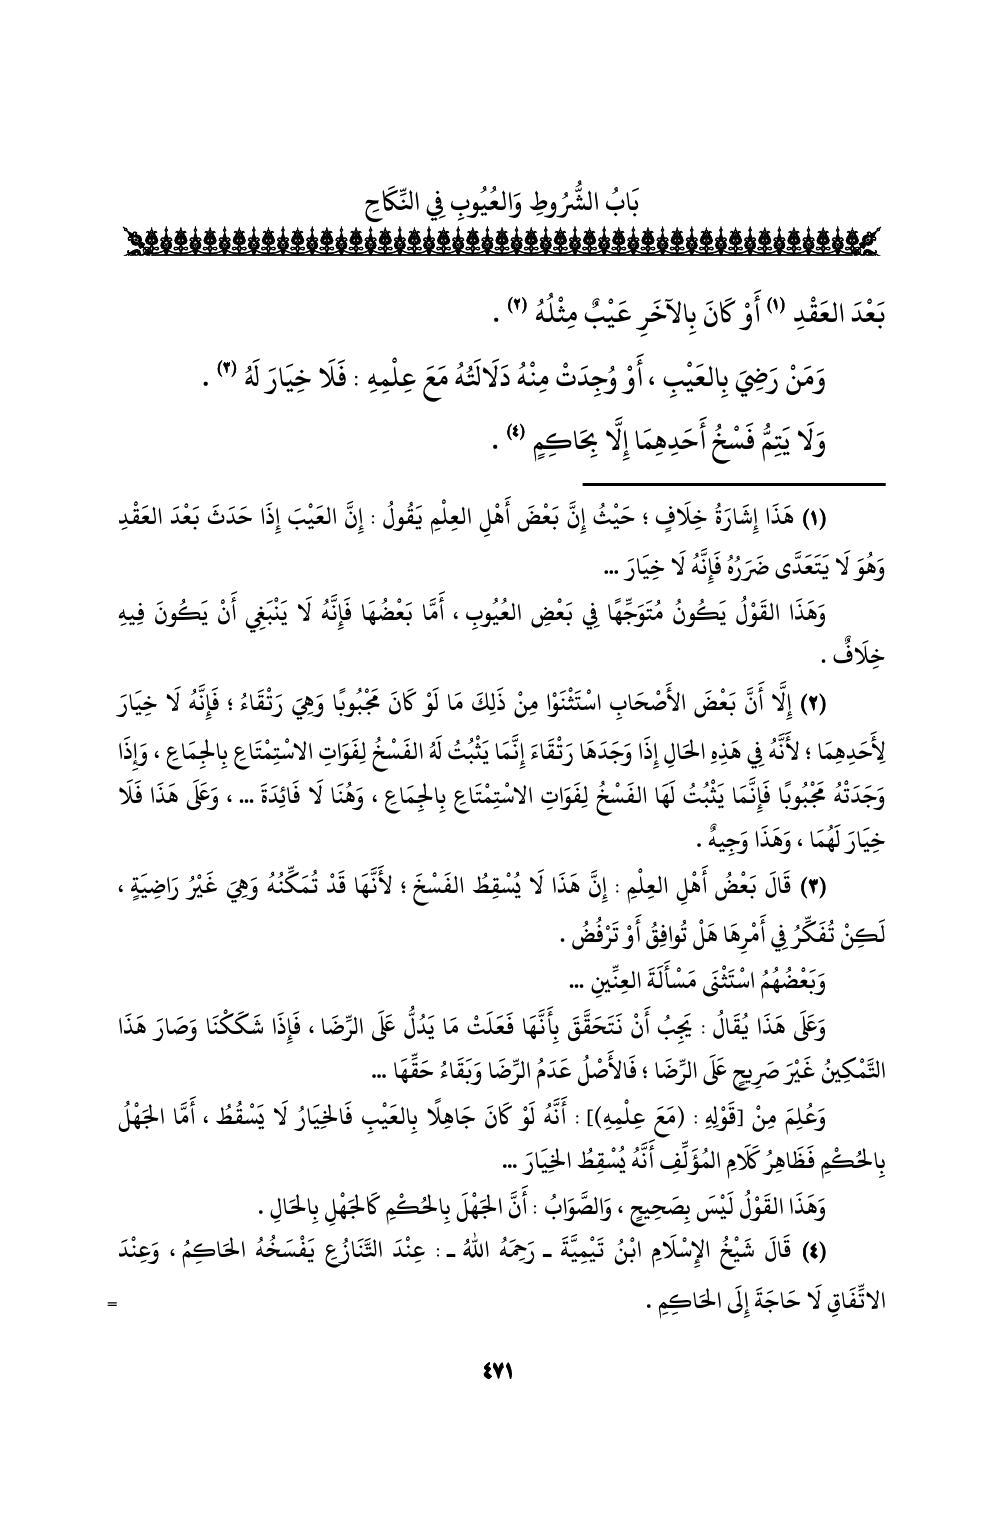 بَابُ الشُّرُوطِ وَالعُيُوبِ فِي النِّكَاحِ
بَعْدَ العَقْدِ (١) أَوْ كَانَ بِالآخَرِ عَيْبٌ مِثْلُهُ (٢) .
وَمَنْ رَضِيَ بِالعَيْبِ ، أَوْ وُجِدَتْ مِنْهُ دَلَالَتُهُ مَعَ عِلْمِهِ : فَلَا خِيَارَ لَهُ (٣) .
وَلَا يَتِمُّ فَسْخُ أَحَدِهِمَا إِلَّا بِحَاكِمٍ (٤) .
(١) هَذَا إِشَارَةُ خِلَافٍ ؛ حَيْثُ إِنَّ بَعْضَ أَهْلِ العِلْمِ يَقُولُ : إِنَّ العَيْبَ إِذَا حَدَثَ بَعْدَ العَقْدِ
وَهُوَ لَا يَتَعَدَّى ضَرَرُهُ فَإِنَّهُ لَا خِيَارَ ...
وَهَذَا القَوْلُ يَكُونُ مُتَوَجِّهًا فِي بَعْضِ العُيُوبِ ، أَمَّا بَعْضُهَا فَإِنَّهُ لَا يَنْبَغِي أَنْ يَكُونَ فِيهِ
خِلَافٌ .
(٢) إِلَّا أَنَّ بَعْضَ الأَصْحَابِ اسْتَثْنَوْا مِنْ ذَلِكَ مَا لَوْ كَانَ مَجْبُوبًا وَهِيَ رَتْقَاءُ ؛ فَإِنَّهُ لَا خِيَارَ
لِأَحَدِهِمَا ؛ لأَنَّهُ فِي هَذِهِ الحَالِ إِذَا وَجَدَهَا رَتْقَاءَ إِنَّمَا يَثْبُتُ لَهُ الفَسْخُ لِفَوَاتِ الاسْتِمْتَاعِ بِالجِمَاعِ ، وَإِذَا
وَجَدَتْهُ مَجْبُوبًا فَإِنَّمَا يَثْبُتُ لَهَا الفَسْخُ لِفَوَاتِ الاسْتِمْتَاعِ بِالجِمَاعِ ، وَهُنَا لَا فَائِدَةَ ... ، وَعَلَى هَذَا فَلَا
خِيَارَ لَهُمَا ، وَهَذَا وَجِيهٌ .
(٣) قَالَ بَعْضُ أَهْلِ العِلْمِ : إِنَّ هَذَا لَا يُسْقِطُ الفَسْخَ ؛ لأَنَّهَا قَدْ تُمَكِّنُهُ وَهِيَ غَيْرُ رَاضِيَةٍ ،
لَكِنْ تُفَكِّرُ فِي أَمْرِهَا هَلْ تُوافِقُ أَوْ تَرْفُضُ .
وَبَعْضُهُمُ اسْتَثْنَى مَسْأَلَةَ العِنِّينِ ...
وَعَلَى هَذَا يُقَالُ : يَجِبُ أَنْ نَتَحَقَّقَ بِأَنَّهَا فَعَلَتْ مَا يَدُلُّ عَلَى الرِّضَا ، فَإِذَا شَكَكْنَا وَصَارَ هَذَا
التَّمْكِينُ غَيْرَ صَرِيحٍ عَلَى الرِّضَا ؛ فَالأَصْلُ عَدَمُ الرِّضَا وَبَقَاءُ حَقِّهَا ...
وَعُلِمَ مِنْ [قَوْلِهِ : (مَعَ عِلْمِهِ)] : أَنَّهُ لَوْ كَانَ جَاهِلًا بِالعَيْبِ فَالخِيَارُ لَا يَسْقُطُ ، أَمَّا الجَهْلُ
بِالحُكْمِ فَظَاهِرُ كَلَامِ المُؤَلِّفِ أَنَّهُ يُسْقِطُ الخِيَارَ ...
وَهَذَا القَوْلُ لَيْسَ بِصَحِيحٍ ، وَالصَّوَابُ : أَنَّ الجَهْلَ بِالحُكْمِ كَالجَهْلِ بِالحَالِ .
(٤) قَالَ شَيْخُ الإِسْلَامِ ابْنُ تَيْمِيَّةَ ـ رَحِمَهُ اللهُ ـ : عِنْدَ التَّنَازُعِ يَفْسَخُهُ الحَاكِمُ ، وَعِنْدَ
الاتِّفَاقِ لَا حَاجَةَ إِلَى الحَاكِمِ . =
٤٧١